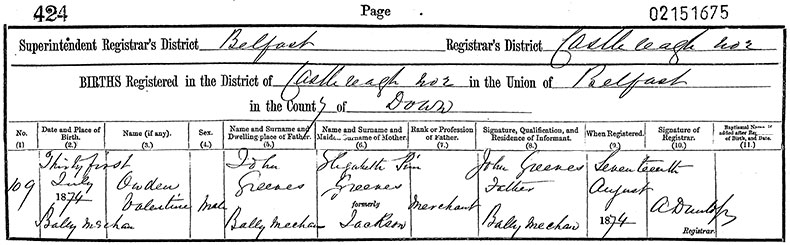 424 Page 02151675
Superintendent Registrar's District Belfast Registrar's District Castlereagh No2
BIRTHS Registered in the District of Castlereagh No2 in the Union of Belfast
in the County of Down
No. Date and Place of Birth. Name (if any). Sex. Name and Surname and Dwelling-place of Father. Name and Surname and Maiden Surname of Mother. Rank or Profession of Father. Signature, Qualification, and Residence of Informant. When Registered. Signature of Registrar. Baptismal Name if added after Registration of Birth, and Date.
(1) (2.) (3.) (4.) (5.) (6.) (7.) (8.) (9.) (10.) (11.)
109
Thirty first
July
1874
Bally Mechan
Owden
Valentine
Male
John
Greeves
Bally Mechan
Elizabeth
Greeves
formerly
Jackson
Merchant
John Greeves
Father
Bally Mechan
Seventeenth
August
1874
A Dunlop
Registrar.